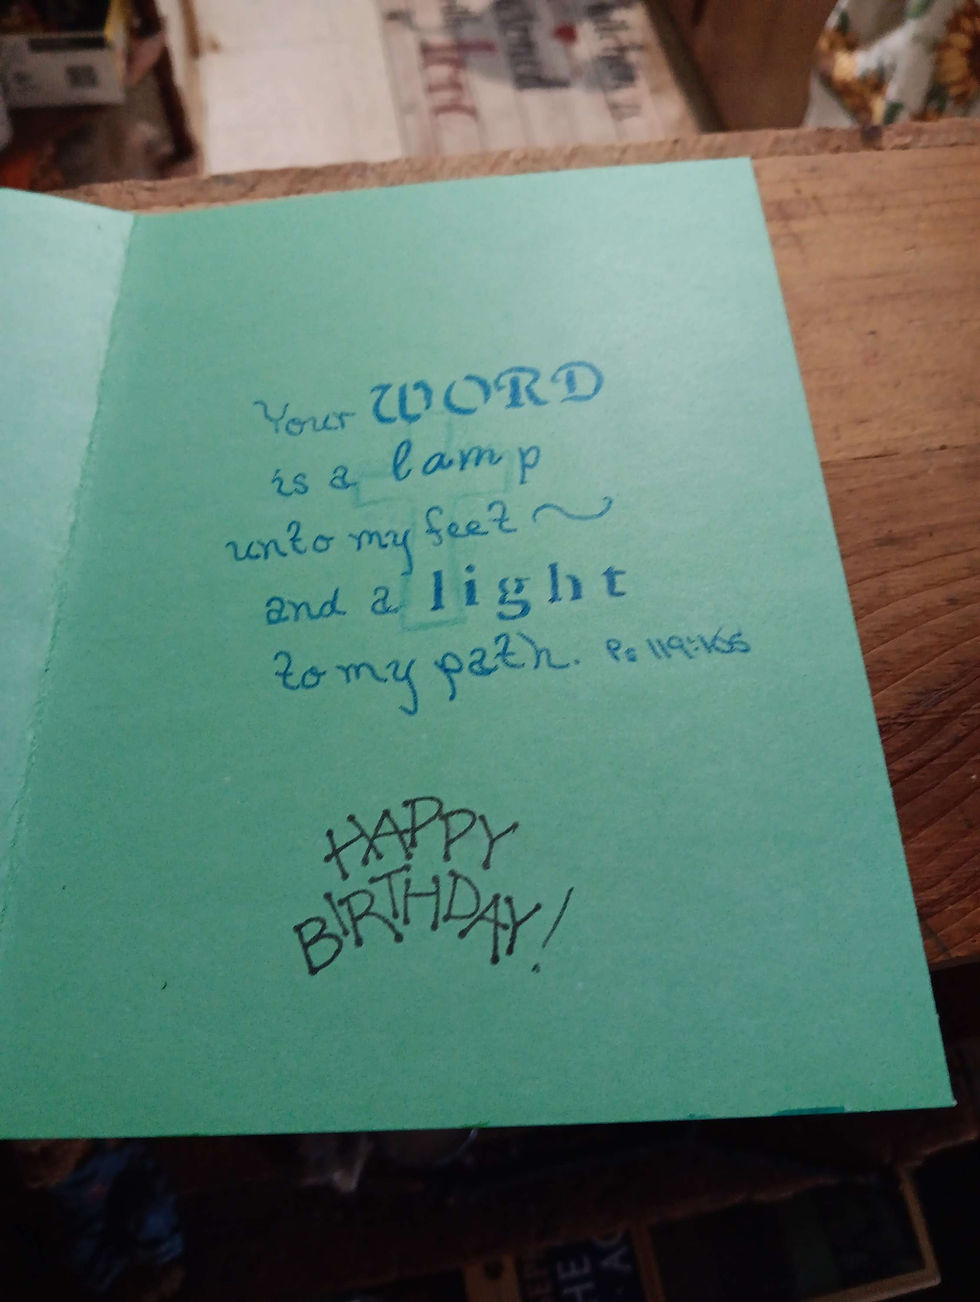 Your WORD
is a lamp
unto my feet ~
and a light
to my path. Ps 119:105
HAPPY
BIRTHDAY!
HE